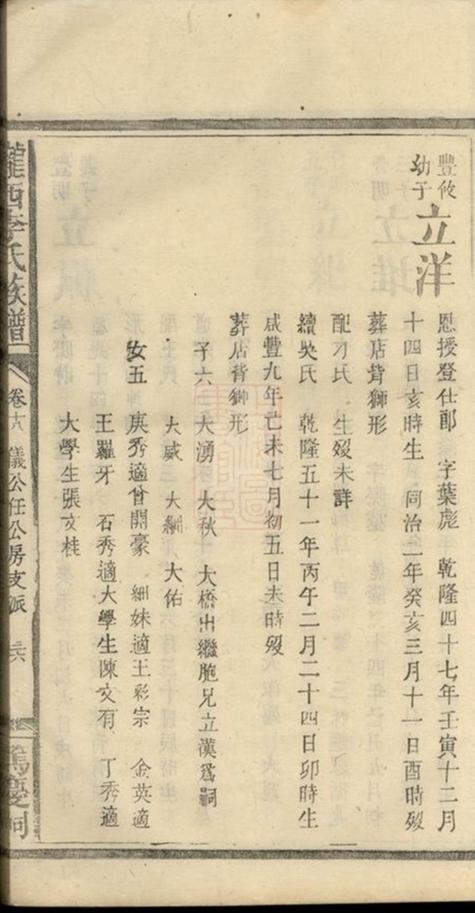 豐攸幼子 立洋
恩授登仕郎 字葉彪 乾隆四十七年壬寅十二月
十四日亥時生 同治二年癸亥三月十一日酉時歿
葬店背獅形
配刁氏 生歿未詳
續吳氏 乾隆五十一年丙午二月二十四日卯時生
咸豐九年己未七月初五日未時歿
葬店背獅形
子六 大湧 大秋 大橋出繼胞兄立漢為嗣
大威 大綱 大佑
女五 庚秀適曾開豪 細妹適王彩宗 金英適
王羅牙 石秀適大學生陳文有 丁秀適
大學生張文桂
隴西李氏族譜 卷十八 議公任公房支派 篤慶祠